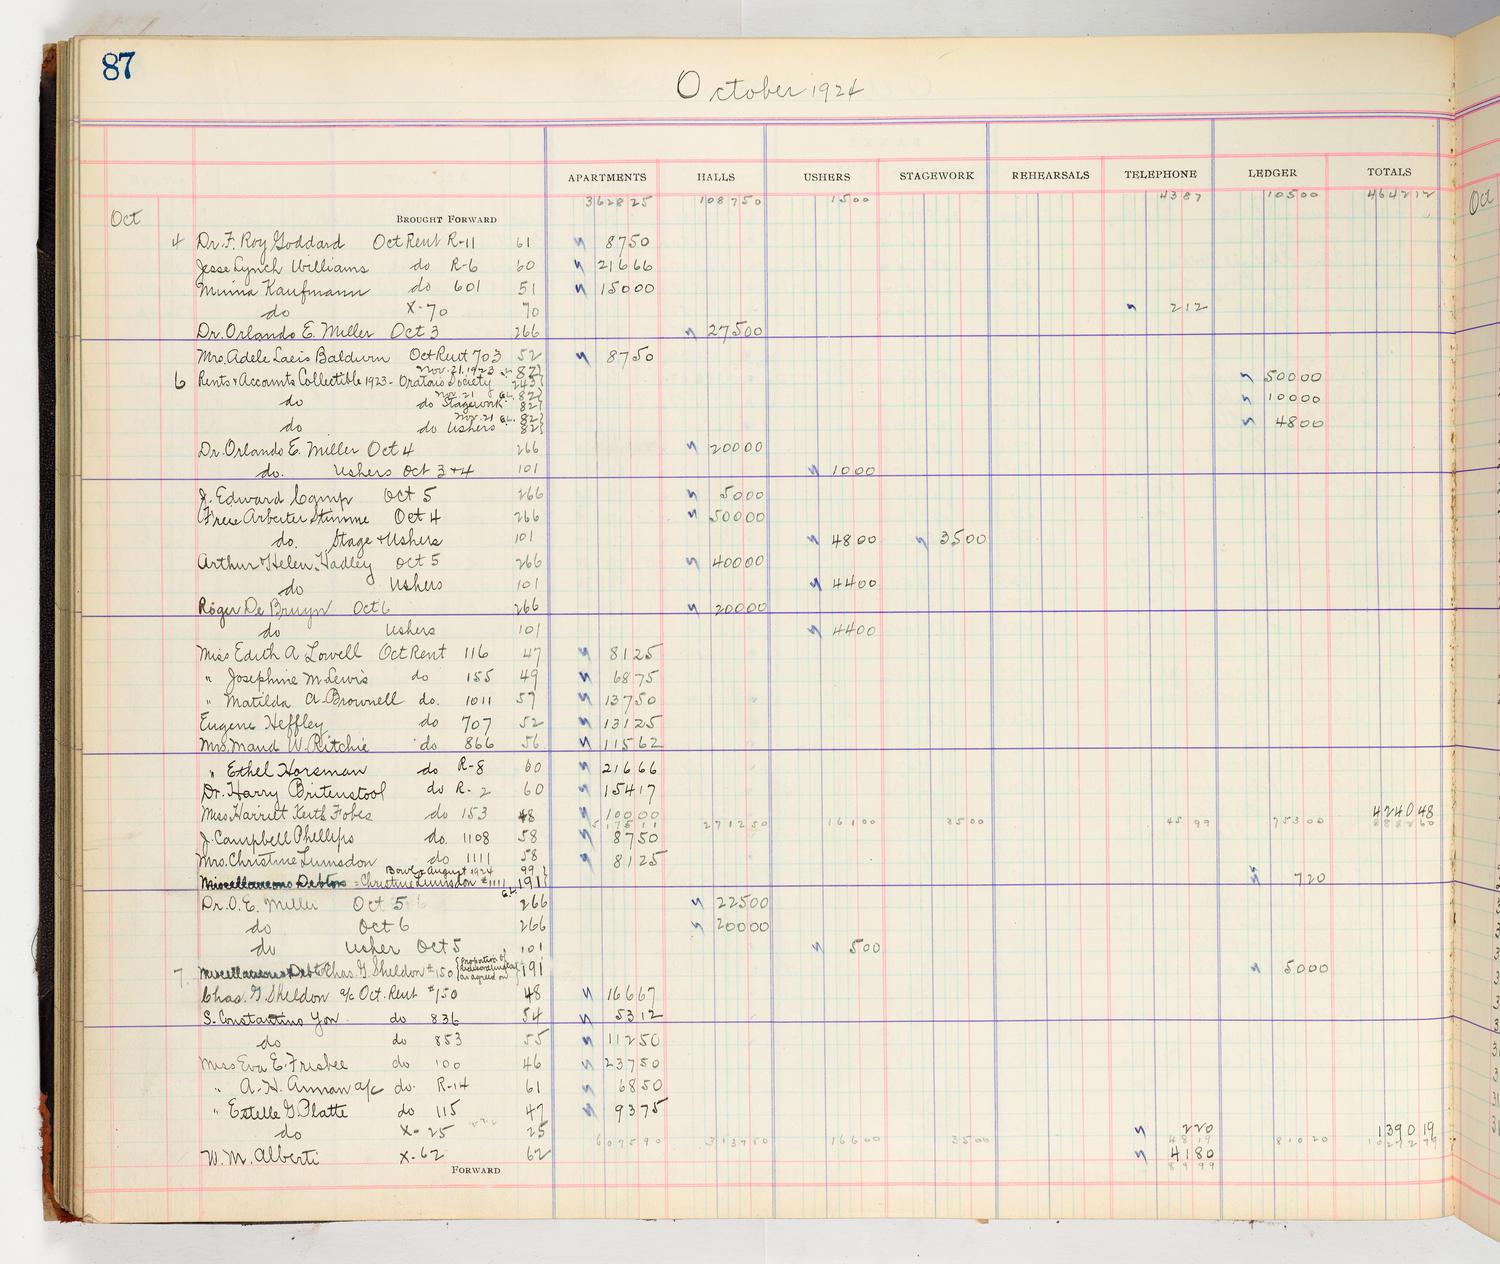 87
October 1924
APARTMENTS HALLS USHERS STAGEWORK REHEARSALS TELEPHONE LEDGER TOTALS
362825 108750 1500 4387 10500 464212
Oct BROUGHT FORWARD Oct
4 Dr. F. Roy Goddard Oct Rent R-11 61 8750
Jesse Lynch Williams do R-6 60 21666
Minna Kaufmann do 601 51 15000
do X-70 70 212
Dr. Orlando E. Miller Oct 3 266 27500
Mrs. Adele Laeis Baldwin Oct Rent 703 52 8750
Nov. 21, 1923 82
6 Rents & Accounts Collectible 1923 - Oratorio Society 243 50000
Nov. 21 G.L. 82
do do Stagework 82 10000
Nov. 21 G.L. 82
do do Ushers 82 4800
Dr. Orlando E. Miller Oct 4 266 20000
do. Ushers Oct 3 + 4 101 1000
J. Edward Comp Oct 5 266 5000
Freie Arbeiter Stimme Oct 4 266 50000
do. Stage & Ushers 101 4800 3500
Arthur & Helen Hadley Oct 5 266 40000
do Ushers 101 4400
Roger De Bruyn Oct 6 266 20000
do Ushers 101 4400
Miss Edith A Lowell Oct Rent 116 47 8125
" Josephine M. Lewis do 155 49 6875
" Matilda A. Brownell do. 1011 57 13750
Eugene Heffley do 707 52 13125
Mrs. Maud W. Ritchie do 866 56 11562
" Ethel Horsman do R-8 60 21666
Dr. Harry Britenstool do R-2 60 15417
Miss Harriet Keith Fobes do 153 48 10000 424048
271250 16100 3500 4599 75300
J. Campbell Phillips do. 1108 58 8750
Mrs. Christine Lumsdon do 1111 58 8125
August 1924 99
Miscellaneous Debtors = Christine Lumsdon #1111 191 720
G.L.
Dr. O. E. Miller Oct 5 266 22500
do Oct 6 266 20000
do Usher Oct 5 101 500
7. Miscellaneous Debt Chas. G. Sheldon #150 Proportion of as agreed on 191 5000
Chas. G. Sheldon a/c Oct. Rent #150 48 16667
S. Constantino Yon do 836 54 5312
do do 853 55 11250
Miss Eva E. Frisbee do 100 46 23750
" A. H. Annan a/c do. R-14 61 6850
" Estelle G. Platte do 115 47 9375
do X-25 25 220 139019
607590 313750 16600 3500 4819 81020
W. M. Alberti X-62 62 4180
FORWARD 8999